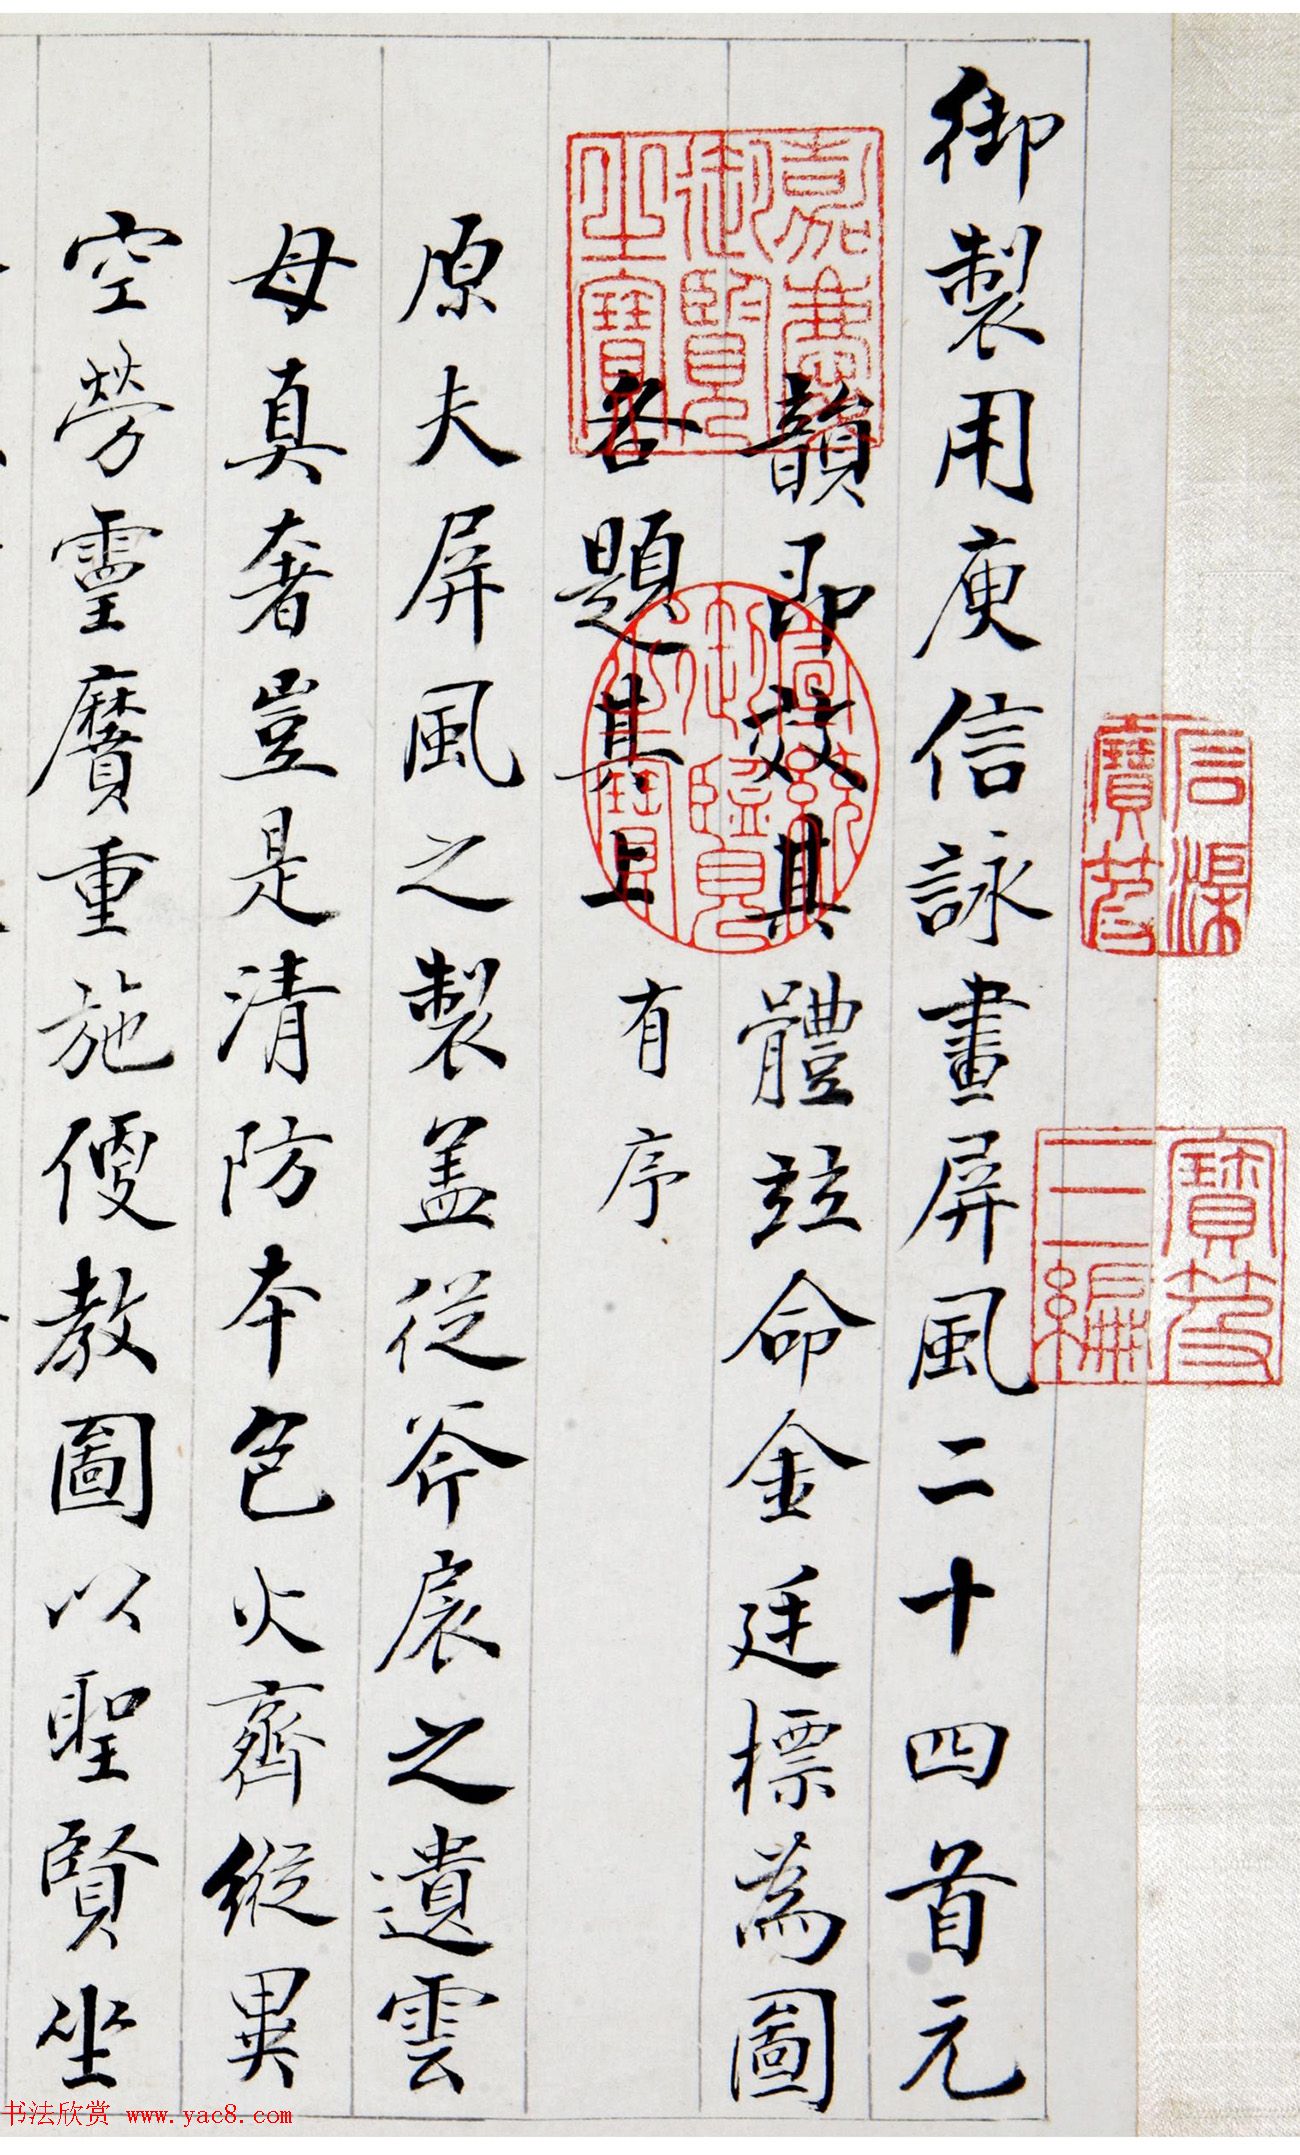 御製用庾信詠畫屏風二十四首元
韻即效其體並命金廷標為圖
各題其上有序
原夫屏風之製蓋從斧扆之遺雲
母真奢豈是清防本色火齊縱異
空勞靈贗重施便教圖以聖賢坐
嘉慶御覽之寶
宣統御覽之寶
石渠寶笈
寶笈三編
书法欣赏 www.yac8.com